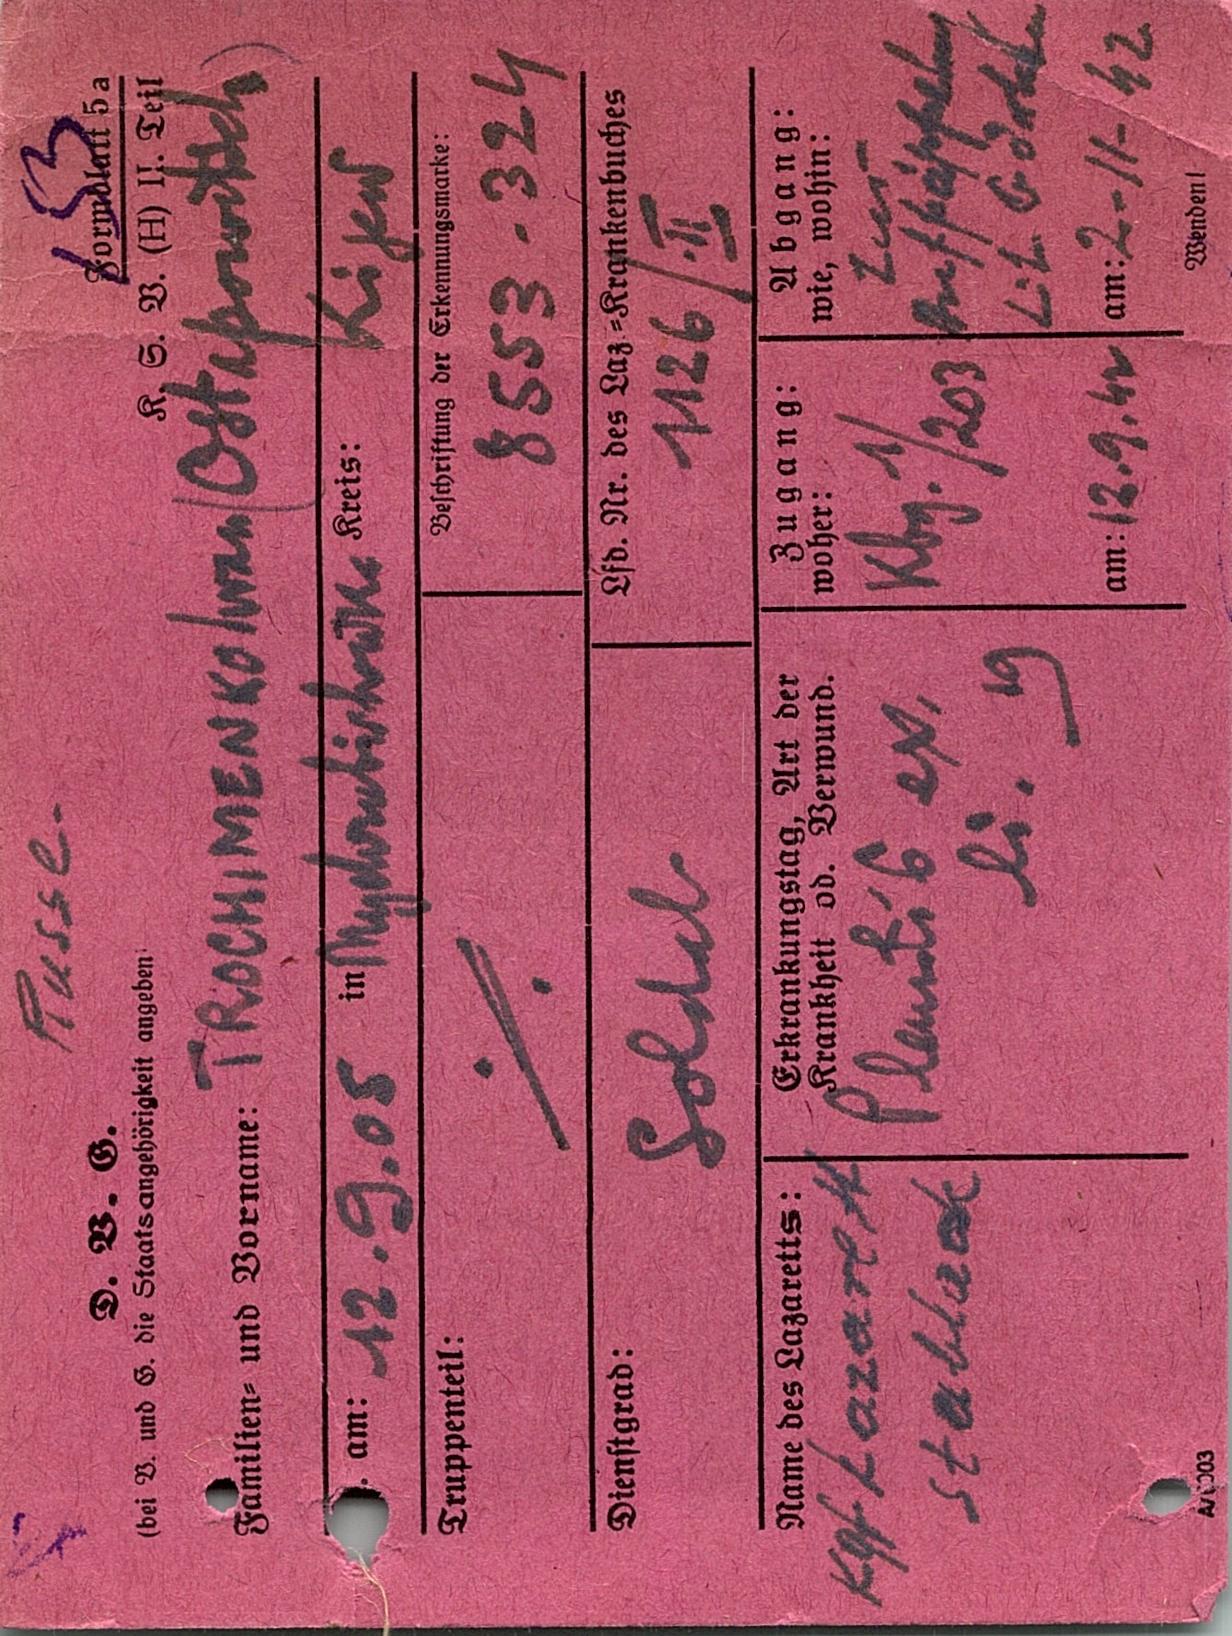 Russe.
153
Formblatt 5a
D. V. G.
K. G. V. (H) II. Teil
(bei V. und G. die Staatsangehörigkeit angeben)
Familien= und Vorname: TROCHIMENKO Iwan (Ostapowitsch)
. am: 12.9.05 in Kreis: Kijew
Truppenteil: ./.
Beschriftung der Erkennungsmarke:
8553-324
Dienstgrad: Soldat
Lfd. Nr. des Laz.=Krankenbuches
1126/II
Name des Lazaretts:
Kgf Lazarett
Stablack
Erkrankungstag, Art der
Krankheit od. Verwund.
Pleuritis ex.
li. 19
Zugang:
woher:
Kbg. 1/203
am: 12.9.42
Abgang:
wie, wohin:
zur
am: 2-11-42
Wenden!